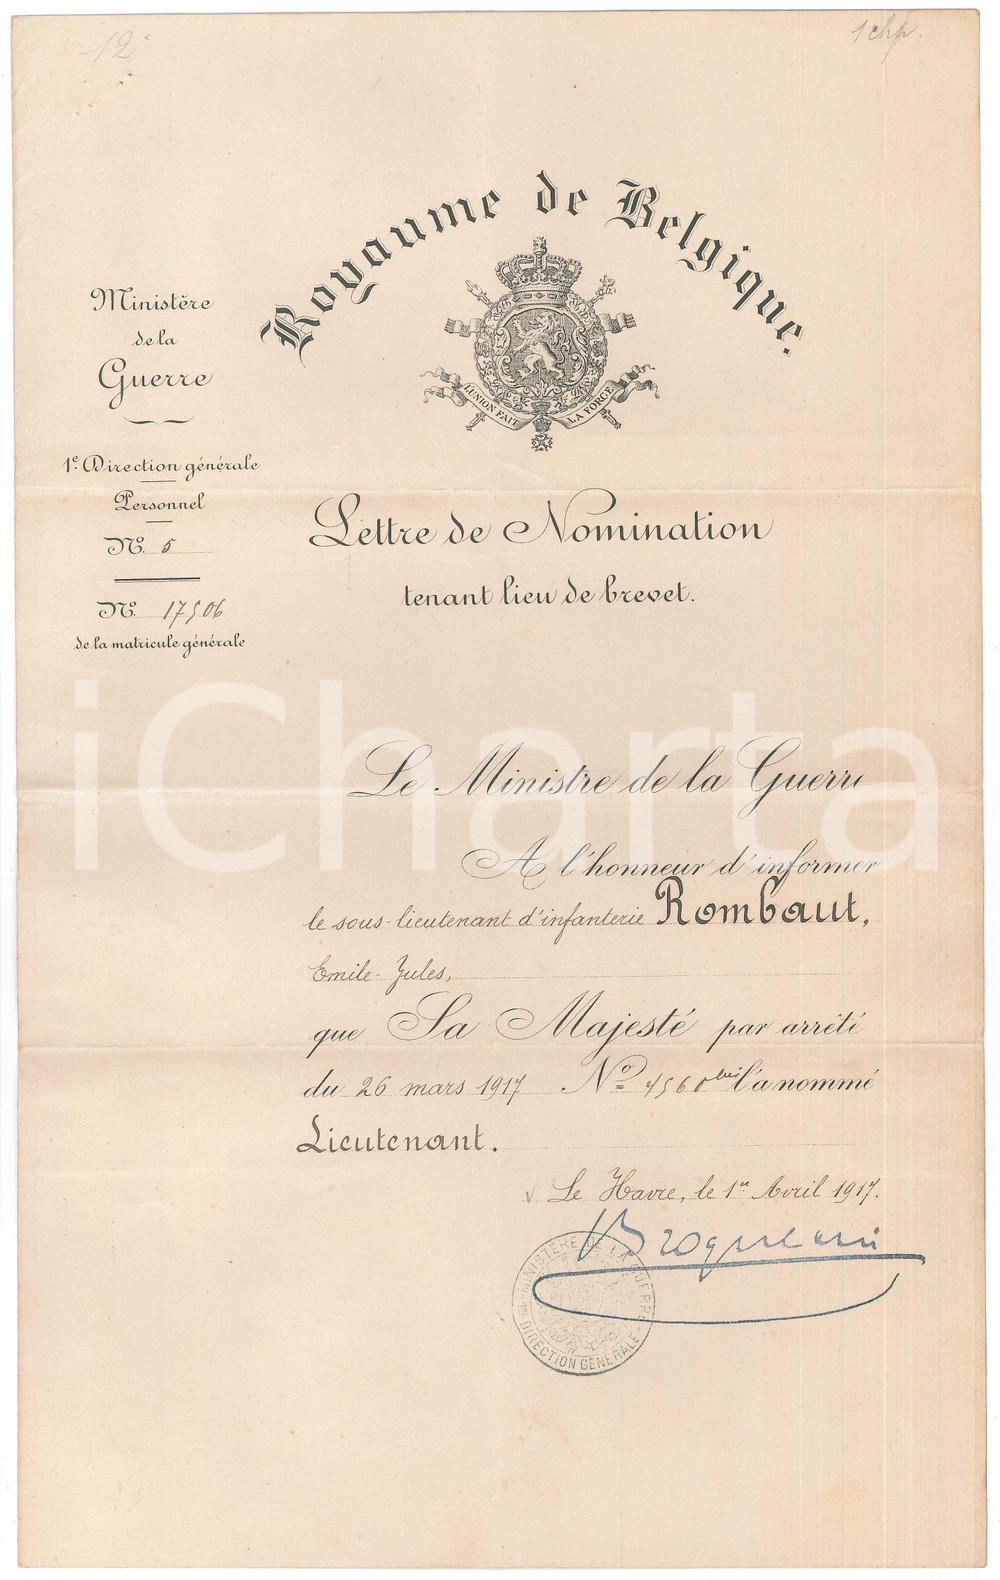 12e
1 chp.
Royaume de Belgique.
L'UNION FAIT LA FORCE
Ministère
de la
Guerre
1e. Direction générale
Personnel
No. 5
No. 17506
de la matricule générale
Lettre de Nomination
tenant lieu de brevet.
iCharta
Le Ministre de la Guerre
A l'honneur d'informer
le sous-lieutenant d'infanterie Rombaut,
Emile-Jules,
que Sa Majesté par arrêté
du 26 mars 1917 No 4560 bis l'a nommé
Lieutenant.
Le Havre, le 1er Avril 1917.
MINISTÈRE DE LA GUERRE
1re DIRECTION GÉNÉRALE